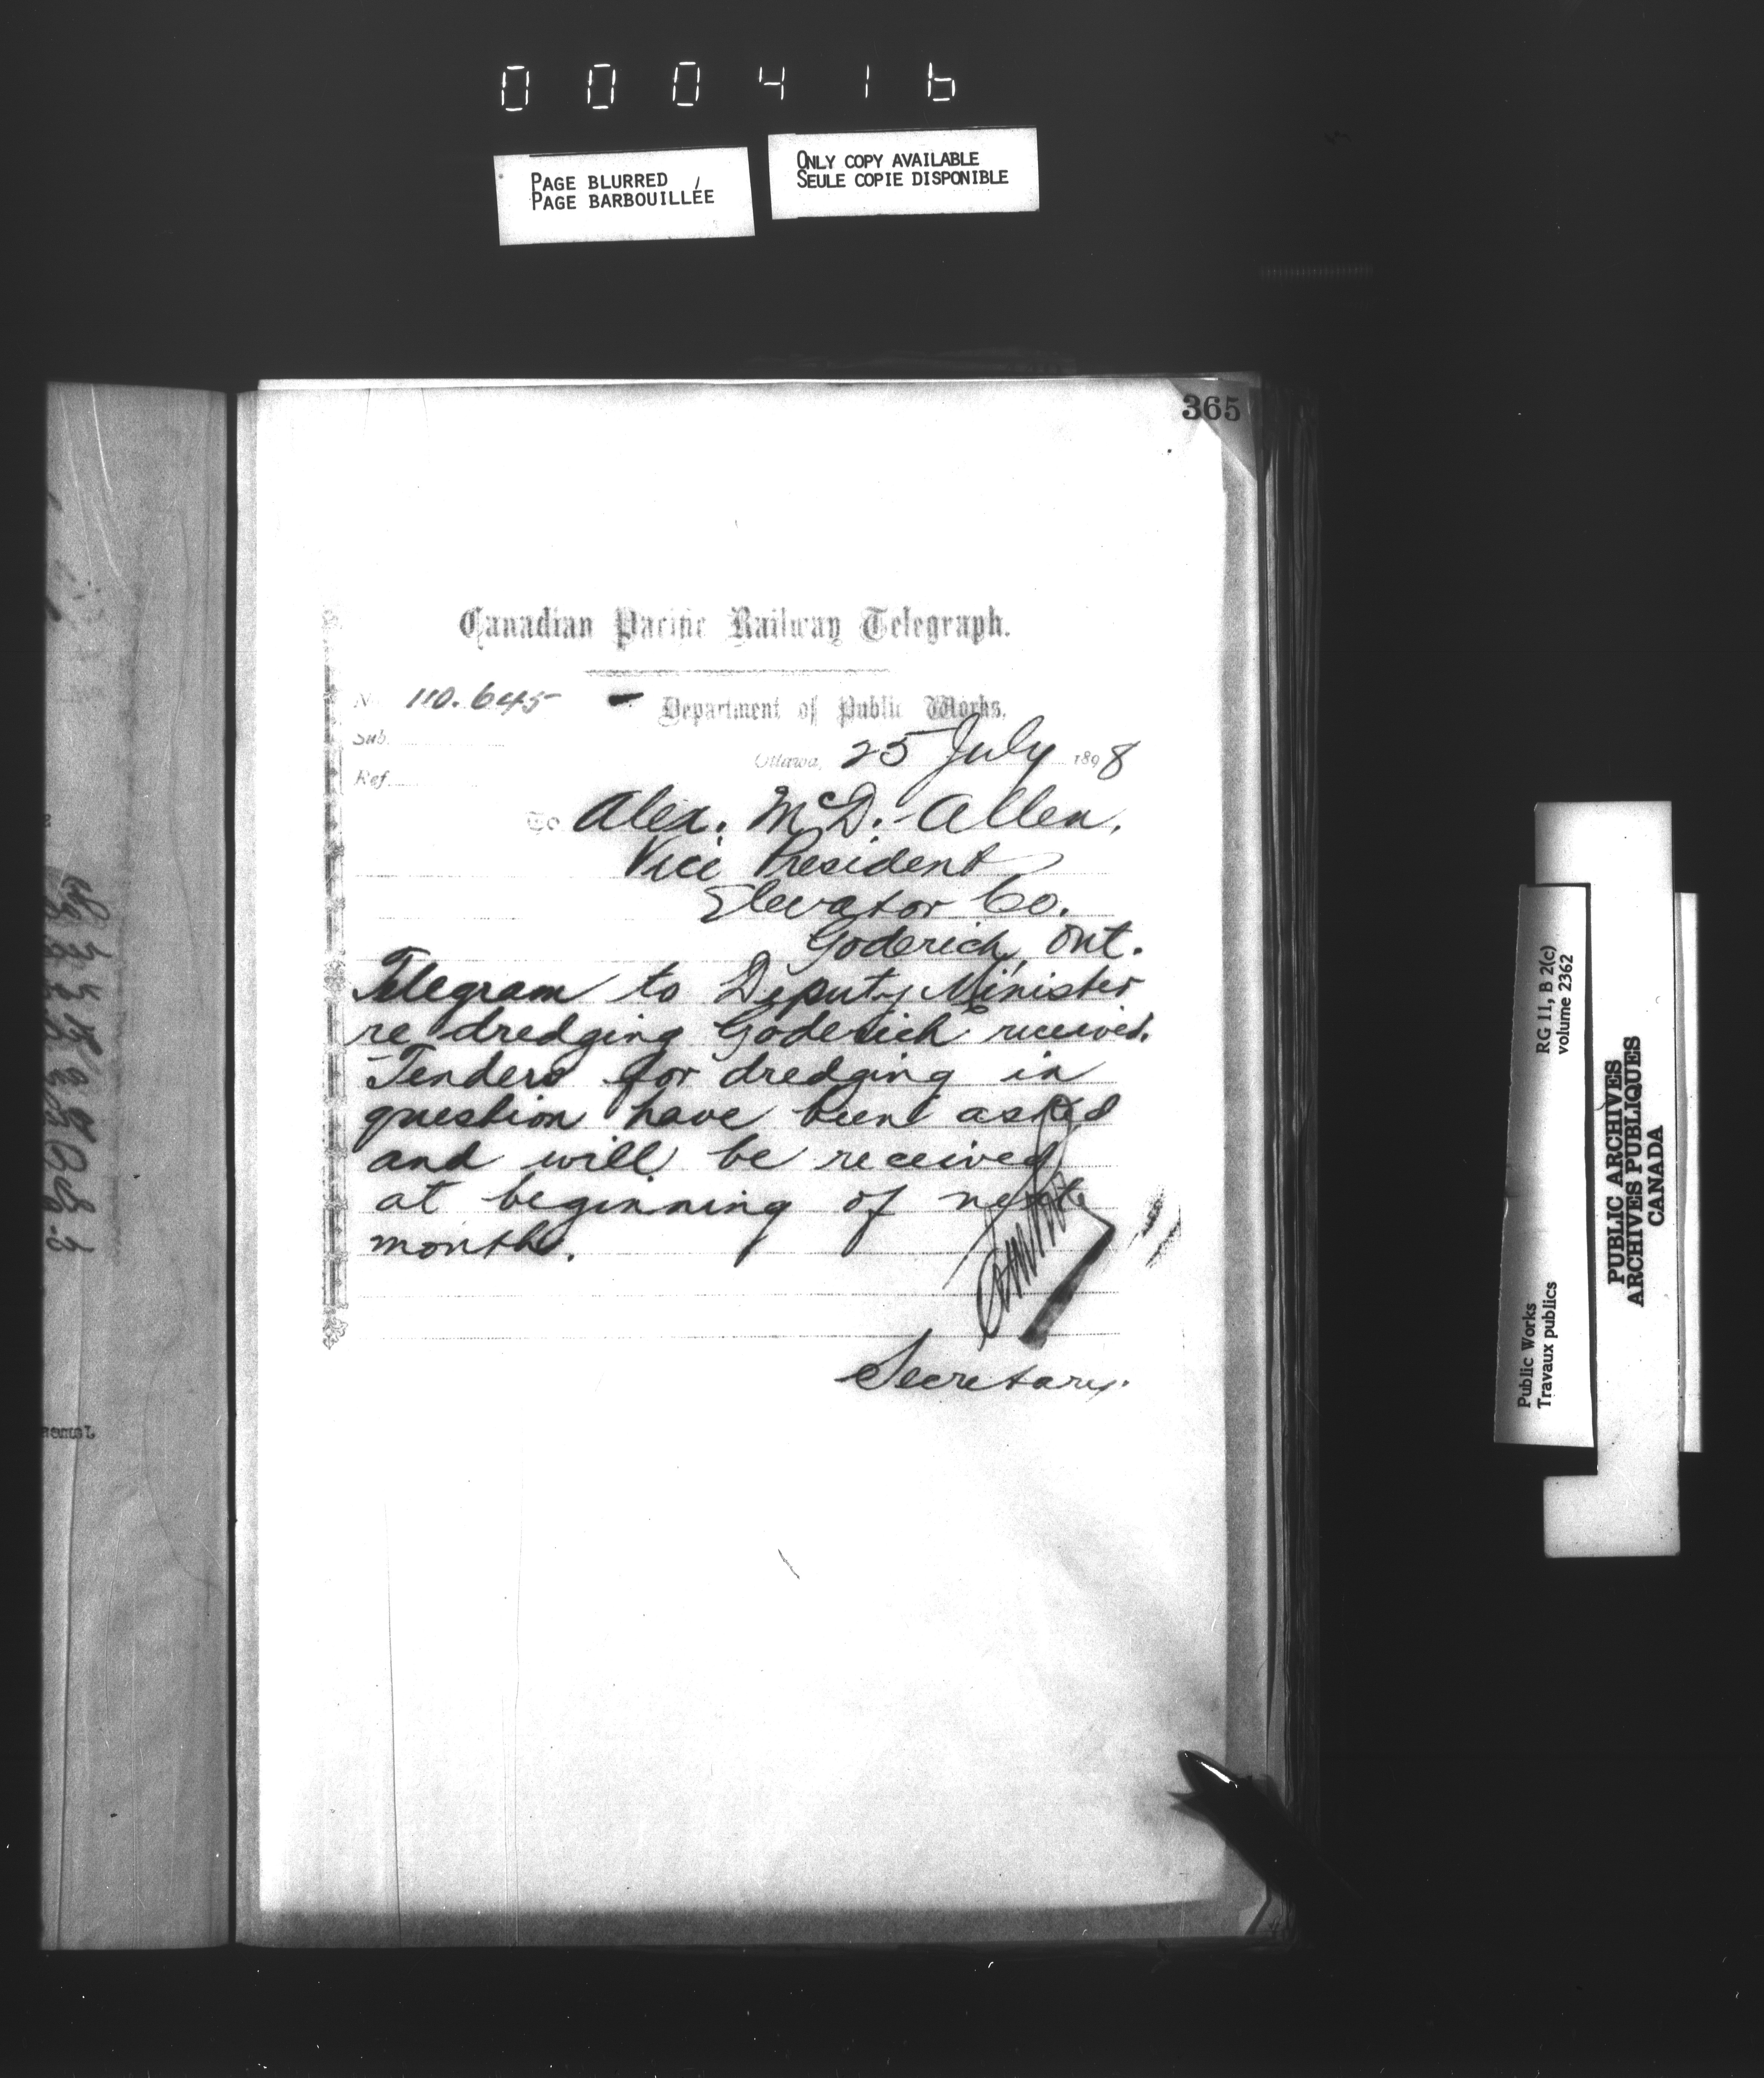 000416
PAGE BLURRED
PAGE BARBOUILLÉE
ONLY COPY AVAILABLE
SEULE COPIE DISPONIBLE
365
Canadian Pacific Railway Telegraph.
No. 110.645
Department of Public Works,
Sub.
Ottawa, 25 July 1898
Ref.
To Alex. McD. Allen.
Vice President
Elevator Co.
Goderich, Ont.
Telegram to Deputy Minister
re dredging Goderich received.
Tenders for dredging in
question have been asked
and will be received
at beginning of next
month.
Secretary.
Public Works
Travaux publics
RG 11, B 2(c)
volume 2362
PUBLIC ARCHIVES
ARCHIVES PUBLIQUES
CANADA